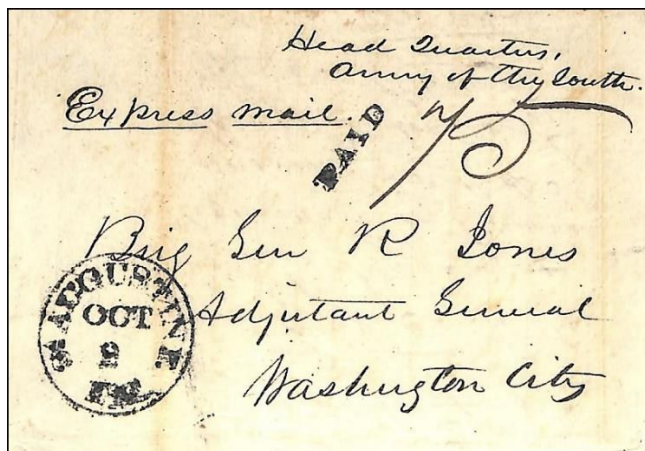 Head Quarters,
Army of the South.
Express Mail.
PAID
75
Brig Gen R Jones
Adjutant General
Washington City
St AUGUSTINE
OCT
9